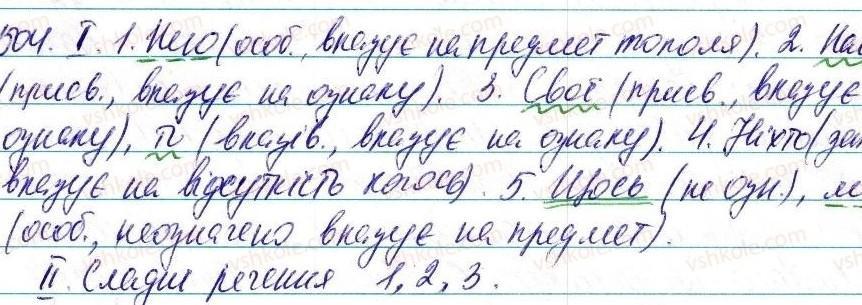 504. І. 1. Нею (особ., вказує на предмет тополя). 2.
(присв., вказує на ознаку). 3. Свої (присв., вказує
ознаку), ті (вказів., вказує на ознаку). 4. Ніхто (
вказує на відсутність когось). 5. Щось (не озн.),
(особ., неозначено вказує на предмет).
ІІ. Сладні речення 1, 2, 3.